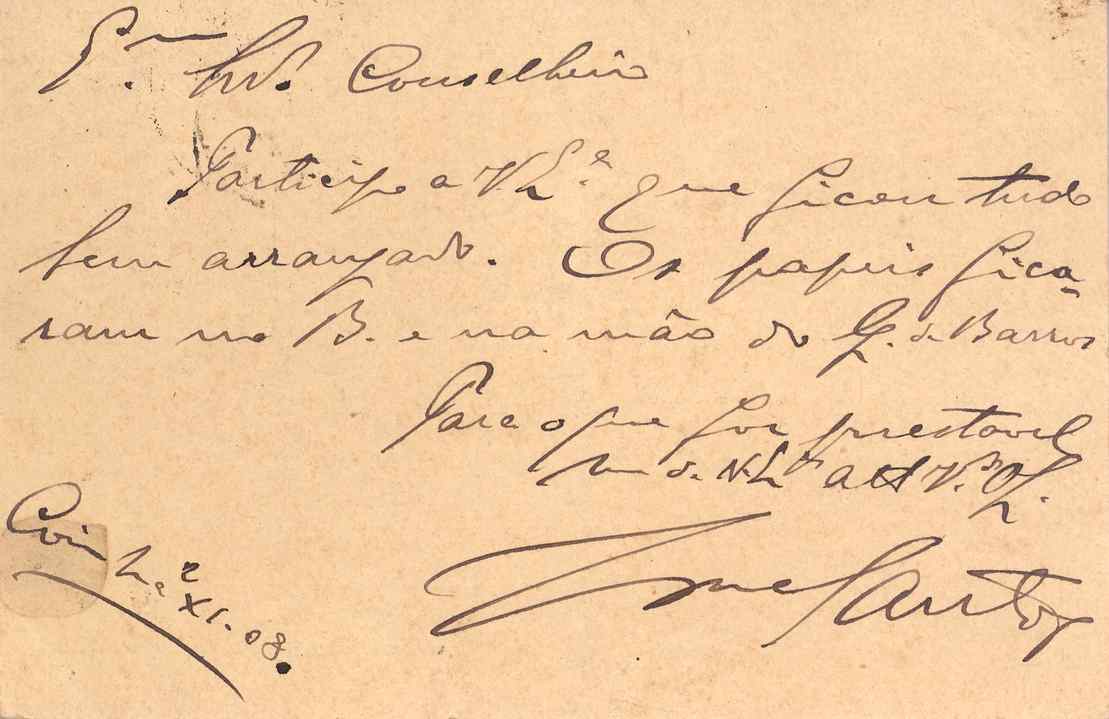 E.mo Snr. Conselheiro
Participo a V. E.ª que ficou tudo
bem arranjado. Os papeis fica-
ram no B. e na mão do G. de Barros
Para o que for prestavel
de V.
Santos
Coimbra 2
XI-08.